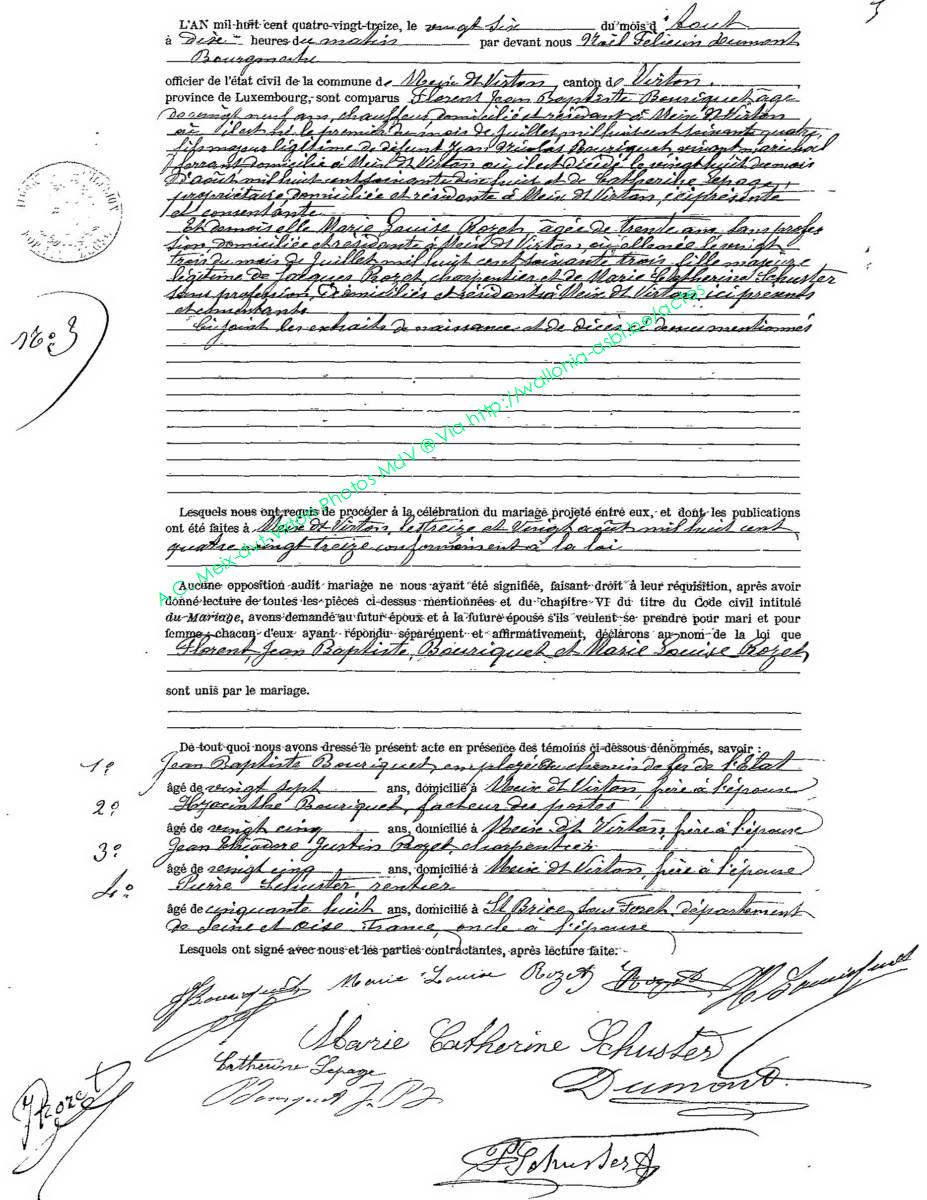 L'AN mil-huit cent quatre-vingt-treize, le vingt six du mois d'Aout
à dixe heures du matin par devant nous Noël Félicien Dumont
Bourgmestre
officier de l'état civil de la commune de Meix dt Virton, canton de Virton,
province de Luxembourg, sont comparus Florent Jean Baptiste Bouriquet, age
de vingt neuf ans, chauffeur domicilié et résidant à Meix dt Virton
où il est né le premier du mois de juillet mil huit cent soixante quatre,
fils majeur légitime de défunt Jean Nicolas Bouriquet, vivant maréchal
ferrant domicilié à Meix dt Virton où il est décédé le vingt huit du mois
d'août mil huit cent soixante dix huit et de Catherine Lepage,
propriétaire, domiciliée et résidante à Meix dt Virton, ici présente
et consentante
Et demoiselle Marie Louise Rozet, âgée de trente ans, sans profes
sion, domiciliée et résidante à Meix dt Virton, où elle née le vingt
trois du mois de juillet mil huit cent soixante trois, fille majeure
légitime de Jacques Rozet charpentier et de Marie Catherine Schuster
sans profession, domiciliés et résidants à Meix dt Virton, ici présents
et consentants
Ci joint les extraits de naissances et de décès ci dessus mentionnés
N° 3
Lesquels nous ont requis de procéder à la célébration du mariage projeté entre eux, et dont les publications
ont été faites à Meix dt Virton, les treize et vingt août mil huit cent
quatre vingt treize conformément à la loi
Aucune opposition audit mariage ne nous ayant été signifiée, faisant droit à leur réquisition, après avoir
donné lecture de toutes les pièces ci-dessus mentionnées et du chapitre VI du titre du Code civil intitulé
du Mariage, avons demandé au futur époux et à la future épouse s'ils veulent se prendre pour mari et pour
femme; chacun d'eux ayant répondu séparément et affirmativement, déclarons au nom de la loi que
Florent, Jean Baptiste, Bouriquet et Marie Louise Rozet,
sont unis par le mariage.
De tout quoi nous avons dressé le présent acte en présence des témoins ci-dessous dénommés, savoir :
1° Jean Baptiste Bouriquet, employé au chemin de fer de l'Etat
âgé de vingt sept ans, domicilié à Meix dt Virton, frère à l'épouse
2° Hyacinthe Bouriquet, facteur des postes
âgé de vingt cinq ans, domicilié à Meix dt Virton, frère à l'épouse
3° Jean Théodore Justin Rozet, charpentier
âgé de vingt cinq ans, domicilié à Meix dt Virton, frère à l'épouse
4° Pierre Schuster rentier
âgé de cinquante huit ans, domicilié à St Brice sous Foret, département
de Seine et Oise, France, oncle à l'épouse
Lesquels ont signé avec nous et les parties contractantes, après lecture faite.
Marie Louise Rozet Rozet
Marie Catherine Schuster
Catherine Lepage
Dumont
Bouriquet J. B
J Rozet
P. Schuster
A.C. Meix-dvt-Virton Photos MdV ® Via http://wallonia-asbl.be/actes